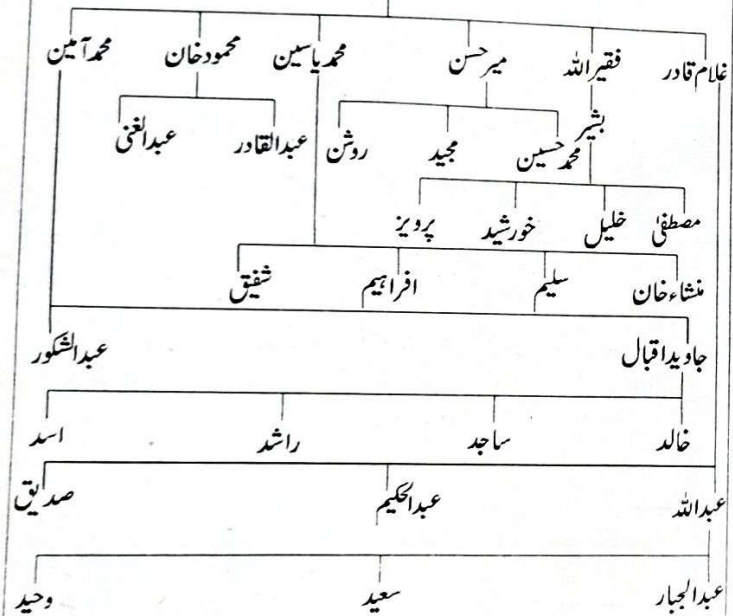 غلام قادر فقیر اللہ میر حسن محمد یاسین محمود خان محمد آمین
بشیر محمد حسین مجید روشن عبدالقادر عبدالغنی
مصطفیٰ خلیل خورشید پرویز
منشاء خان سلیم افراہیم شفیق
جاوید اقبال عبدالشکور
خالد ساجد راشد اسد
عبداللہ عبدالحکیم صدیق
عبدالجبار سعید وحید